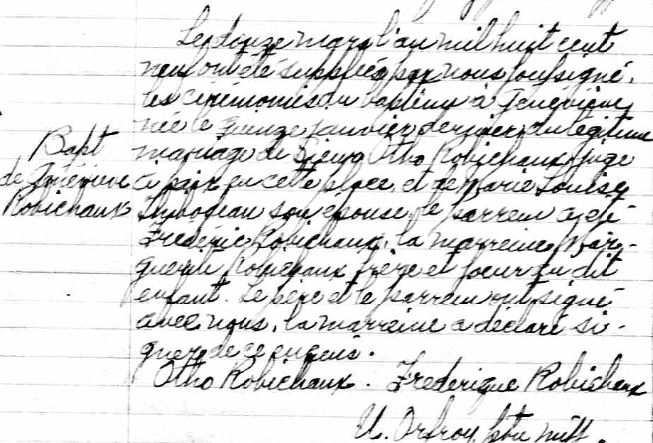 Le douze mars l'an mil huit cent
neuf ont été suppléés par nous soussigné,
les cérémonies du baptême à Geneviève
née le quinze janvier dernier du légitime
mariage de Sieur Otho Robichaux juge
à paix en cette place, et de Marie Louise
Thibodeau son épouse, le parrein a été
Frédéric Robichaux, la marreine Mar-
guerite Robichaux frère et soeur du dit
enfant. Le père et le parrein ont signé
avec nous, la marreine a déclaré si-
gner de ce enquis.
Otho Robichaux. Frederique Robichaux
U. Orfroy ptre miss.
Bapt
de Geneviève
Robichaux